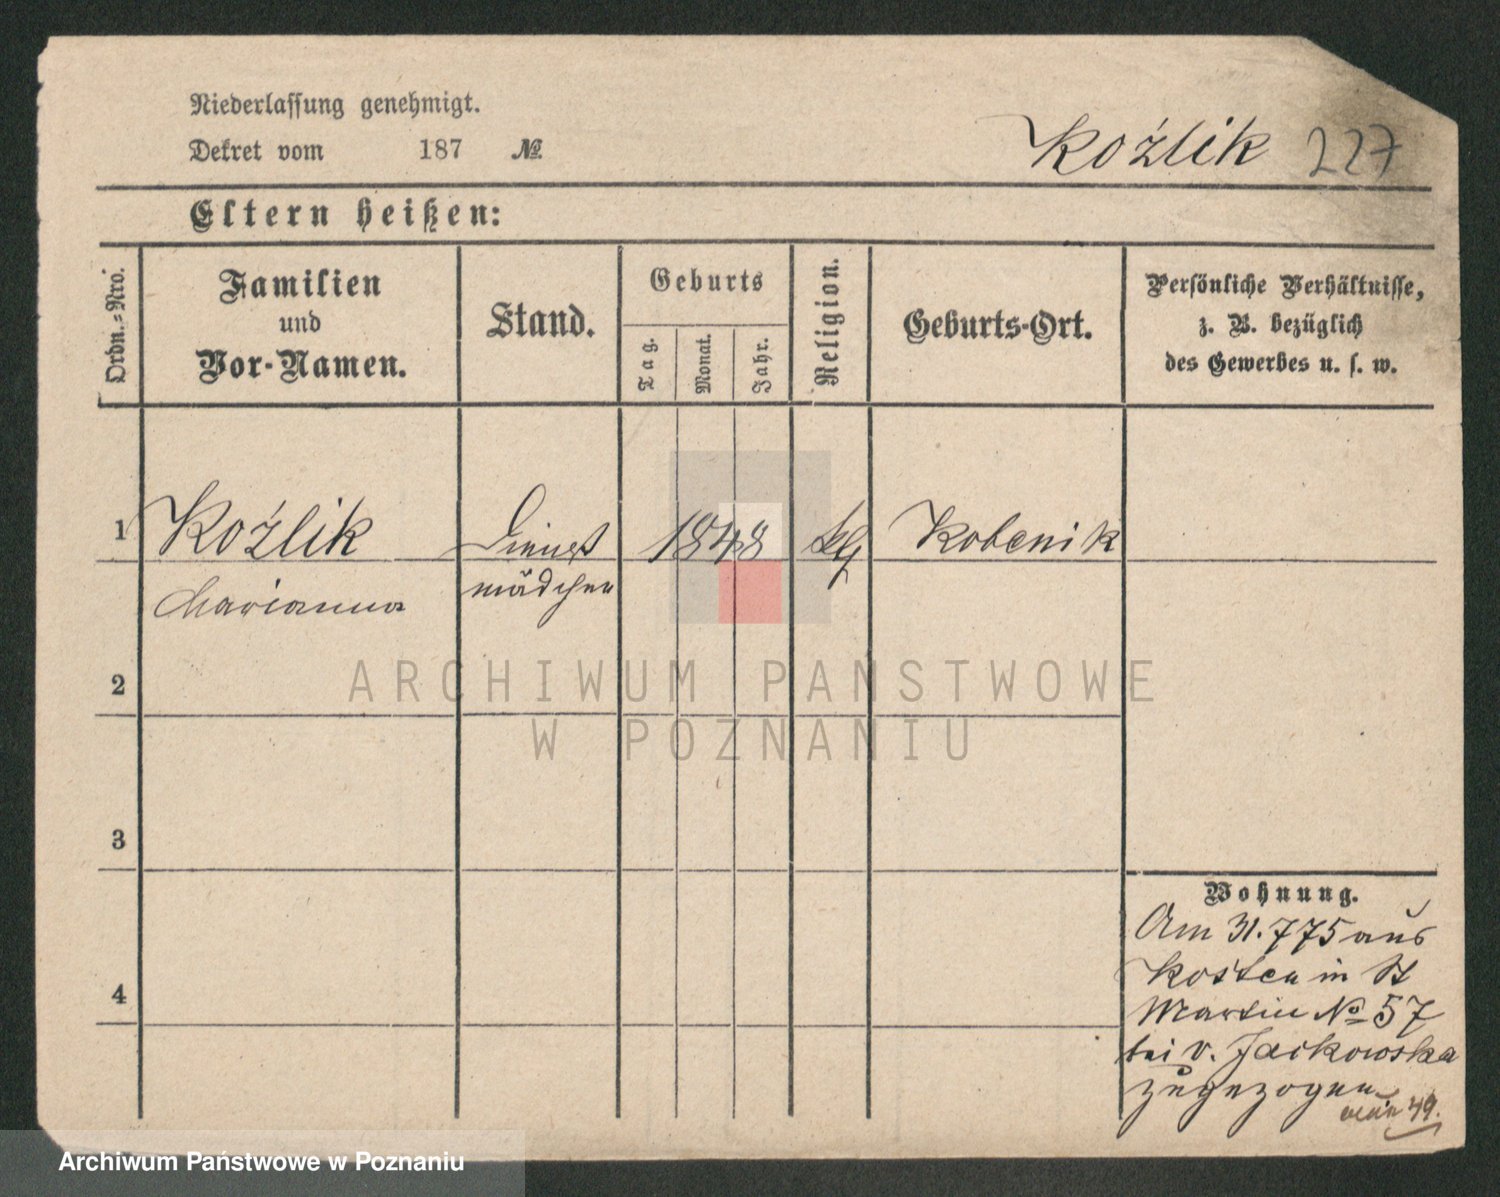 Niederlassung genehmigt.
Dekret vom 187 №
Koźlik 227
Eltern heißen:
Ordn.-Nro.
Familien
und
Vor-Namen.
Stand.
Geburts
Tag.
Monat.
Jahr.
Religion.
Geburts-Ort.
Persönliche Verhältnisse,
z. B. bezüglich
des Gewerbes u. s. w.
1 Koźlik Dienst 1848 Kobenik
Marianna mädchen
2
3
4
Wohnung.
Am 31.7 75 aus
Kosten in St
Martin No 57
bei v. Jackowska
zugezogen
49.
ARCHIWUM PAŃSTWOWE
W POZNANIU
Archiwum Państwowe w Poznaniu